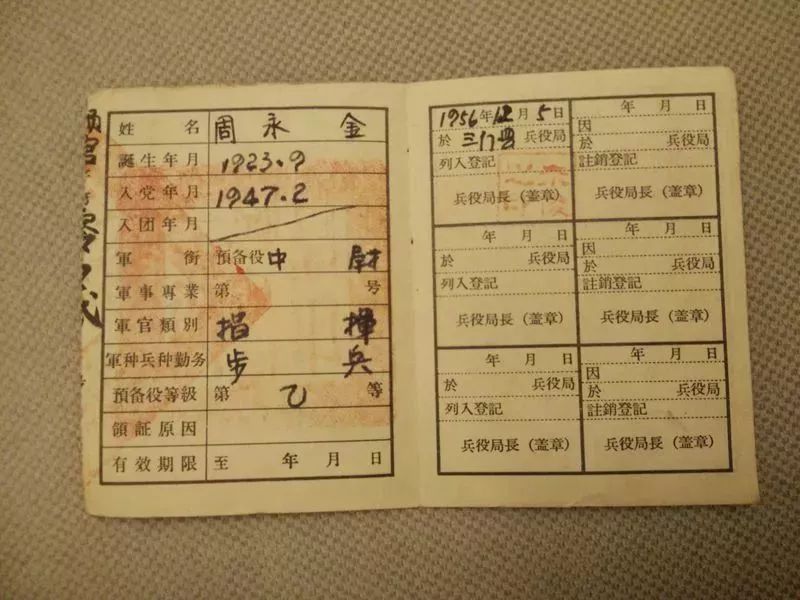 姓名 周永金
誕生年月 1923.9
入党年月 1947.2
入团年月
軍衔 預备役中尉
軍事專業 第 号
軍官類別 指揮
軍种兵种勤务 步兵
預备役等級 第乙等
領証原因
有效期限 至 年 月 日
1956年12月5日
於三门县兵役局
列入登記
兵役局長（盖章）
年 月 日
因
於 兵役局
註銷登記
兵役局長（盖章）
年 月 日
於 兵役局
列入登記
兵役局長（盖章）
年 月 日
因
於 兵役局
註銷登記
兵役局長（盖章）
年 月 日
於 兵役局
列入登記
兵役局長（盖章）
年 月 日
因
於 兵役局
註銷登記
兵役局長（盖章）